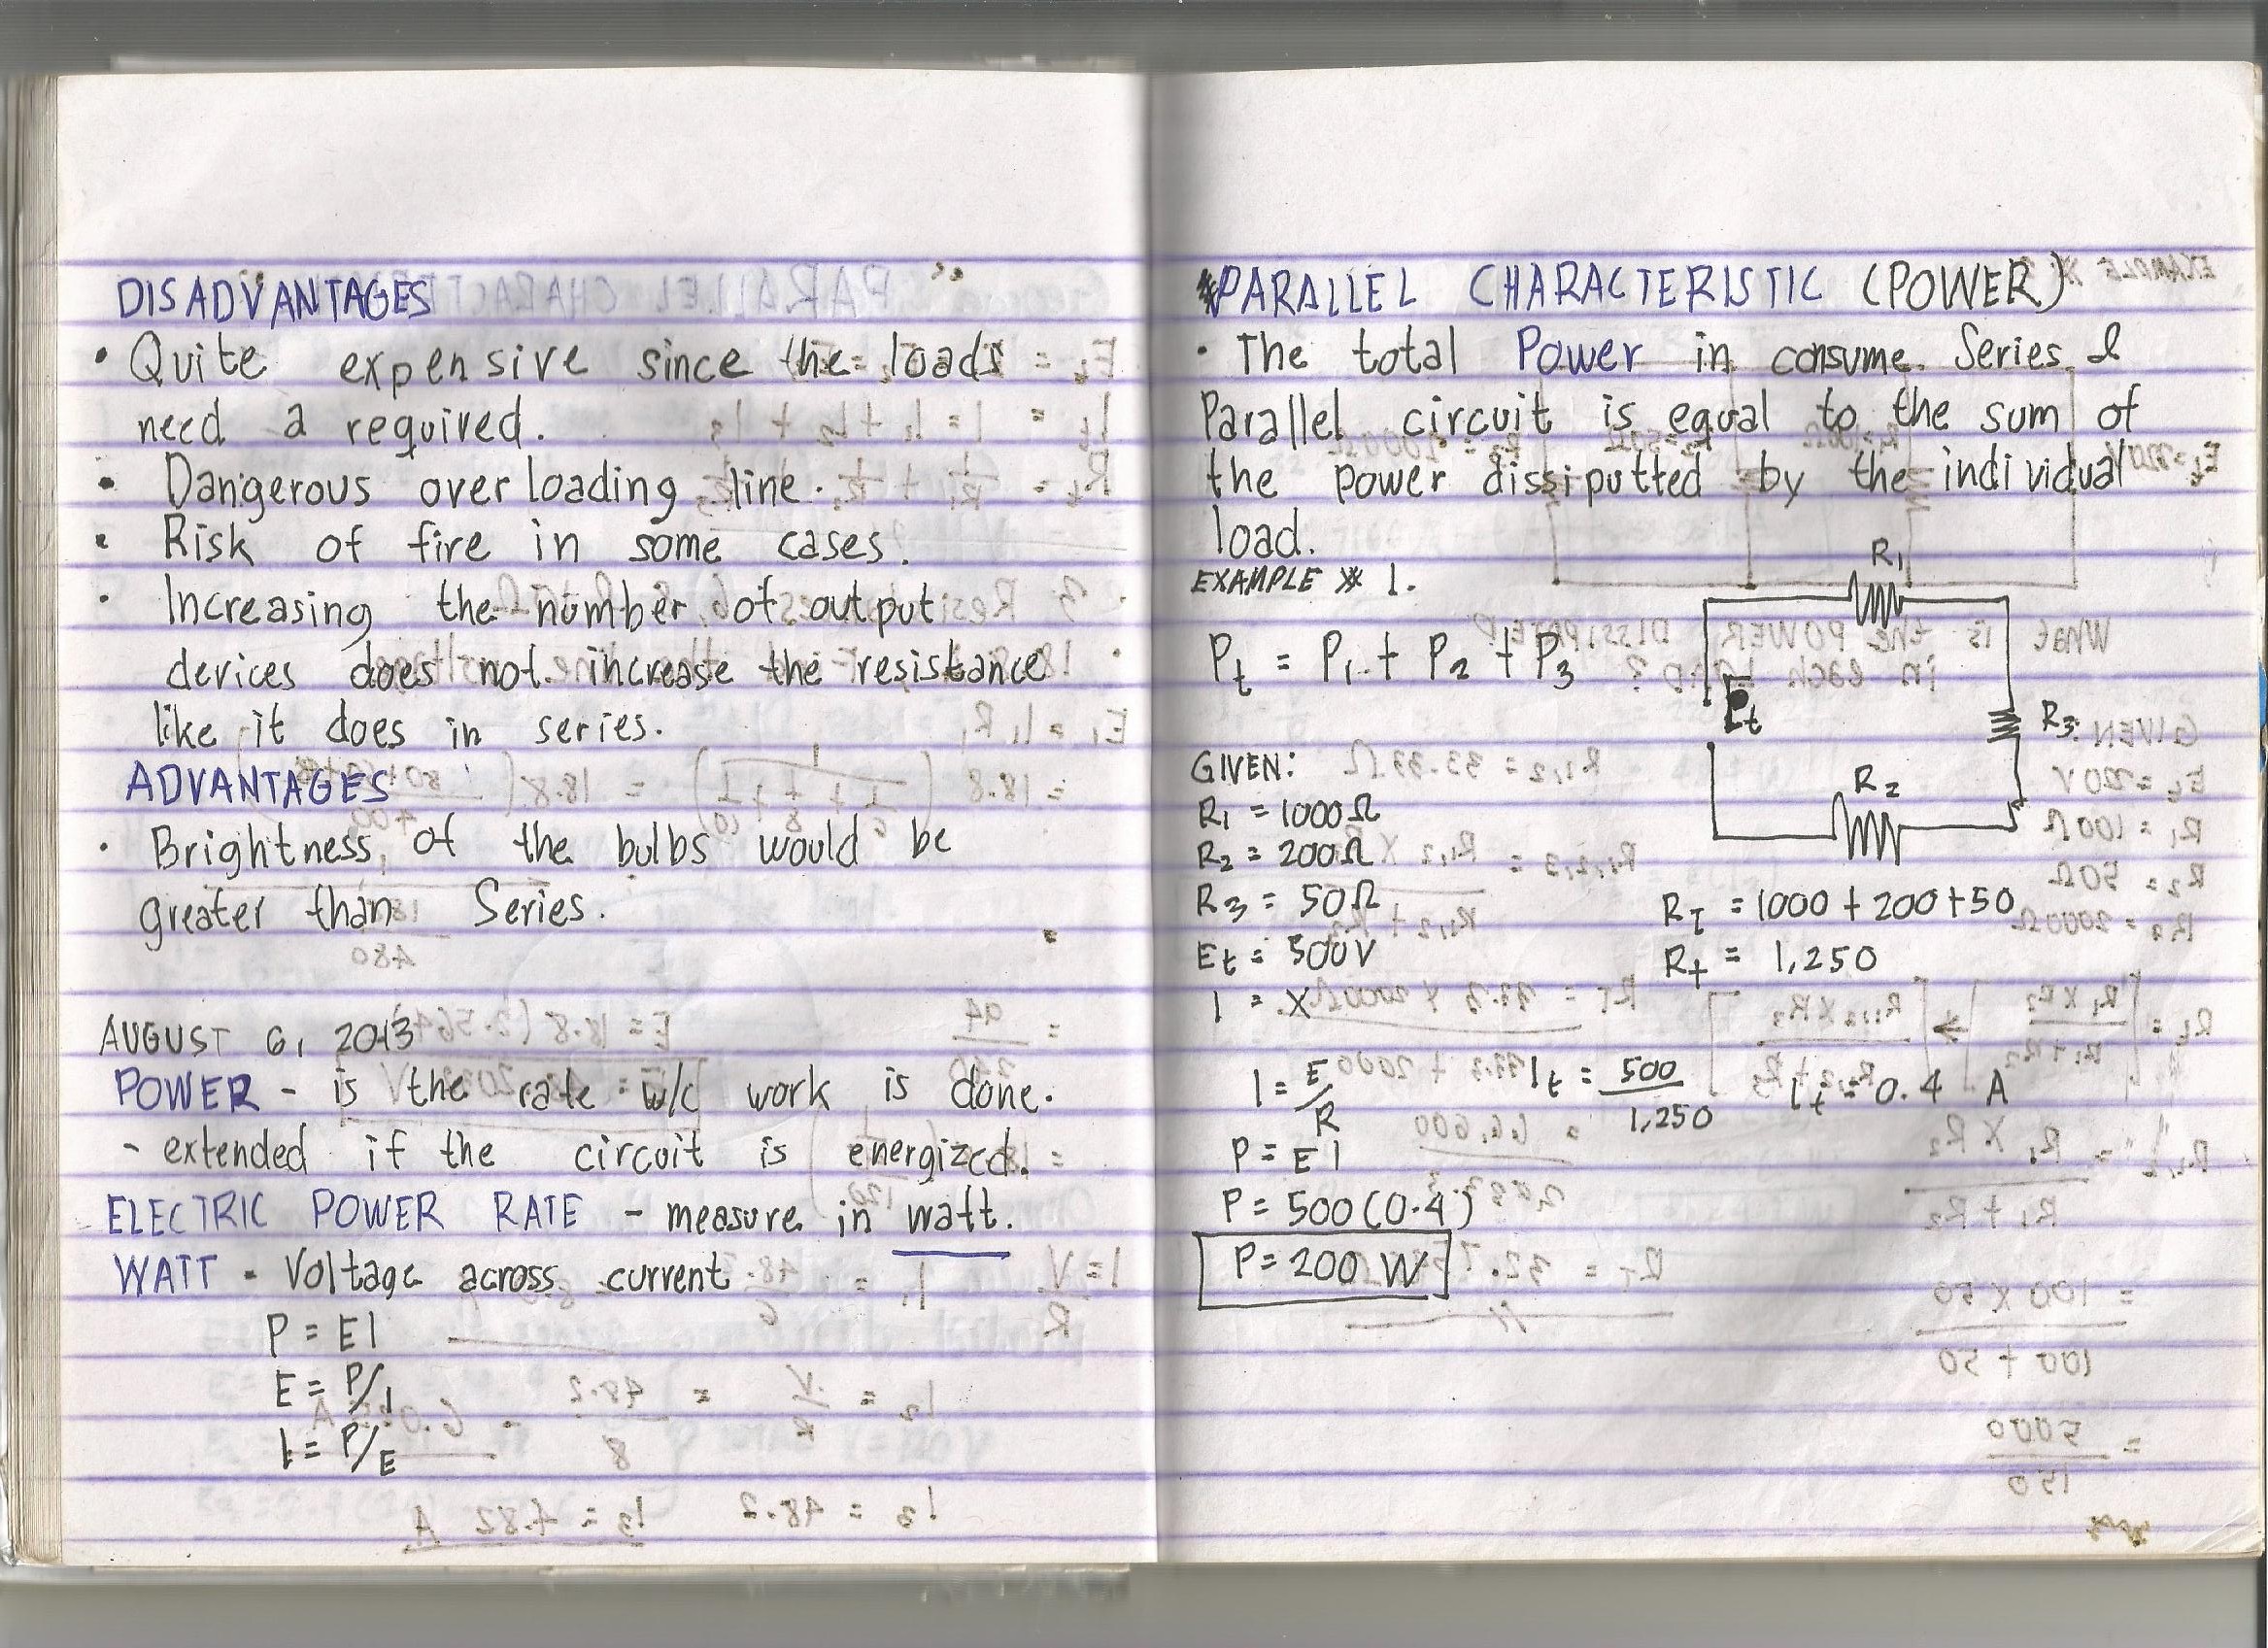 DISADVANTAGES
• Quite expensive since the loads
need a required.
• Dangerous overloading line.
• Risk of fire in some cases.
• Increasing the number of output
devices does not increase the resistance
like it does in series.
ADVANTAGES
• Brightness of the bulbs would be
greater than Series.
AUGUST 6, 2013
POWER - is the rate w/c work is done.
- extended if the circuit is energized.
ELECTRIC POWER RATE - measure in watt.
WATT - Voltage across current
P = EI
E = P/I
I = P/E
*PARALLEL CHARACTERISTIC (POWER)
• The total Power in consume Series &
Parallel circuit is equal to the sum of
the power dissiputted by the individual
load.
EXAMPLE # 1.
Pt = P1 + P2 + P3
R1
Et
R3
R2
GIVEN:
R1 = 1000Ω
R2 = 200Ω
R3 = 50Ω
Et = 500V
I = X
RT = 1000 + 200 + 50
Rt = 1,250
I = E/R
It = 500/1,250
It = 0.4 A
P = EI
P = 500(0.4)
P = 200 W